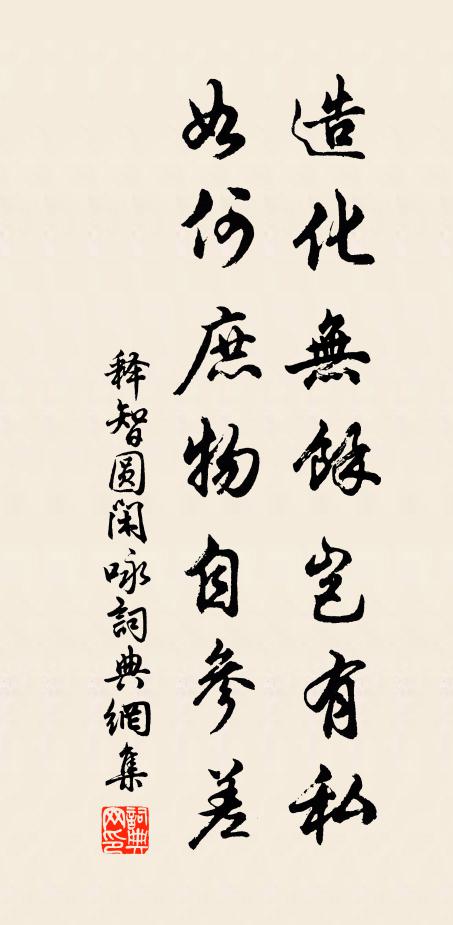 造化無餘豈有私
如何庶物自參差
释智圆閑咏詞典網集
詞典網印